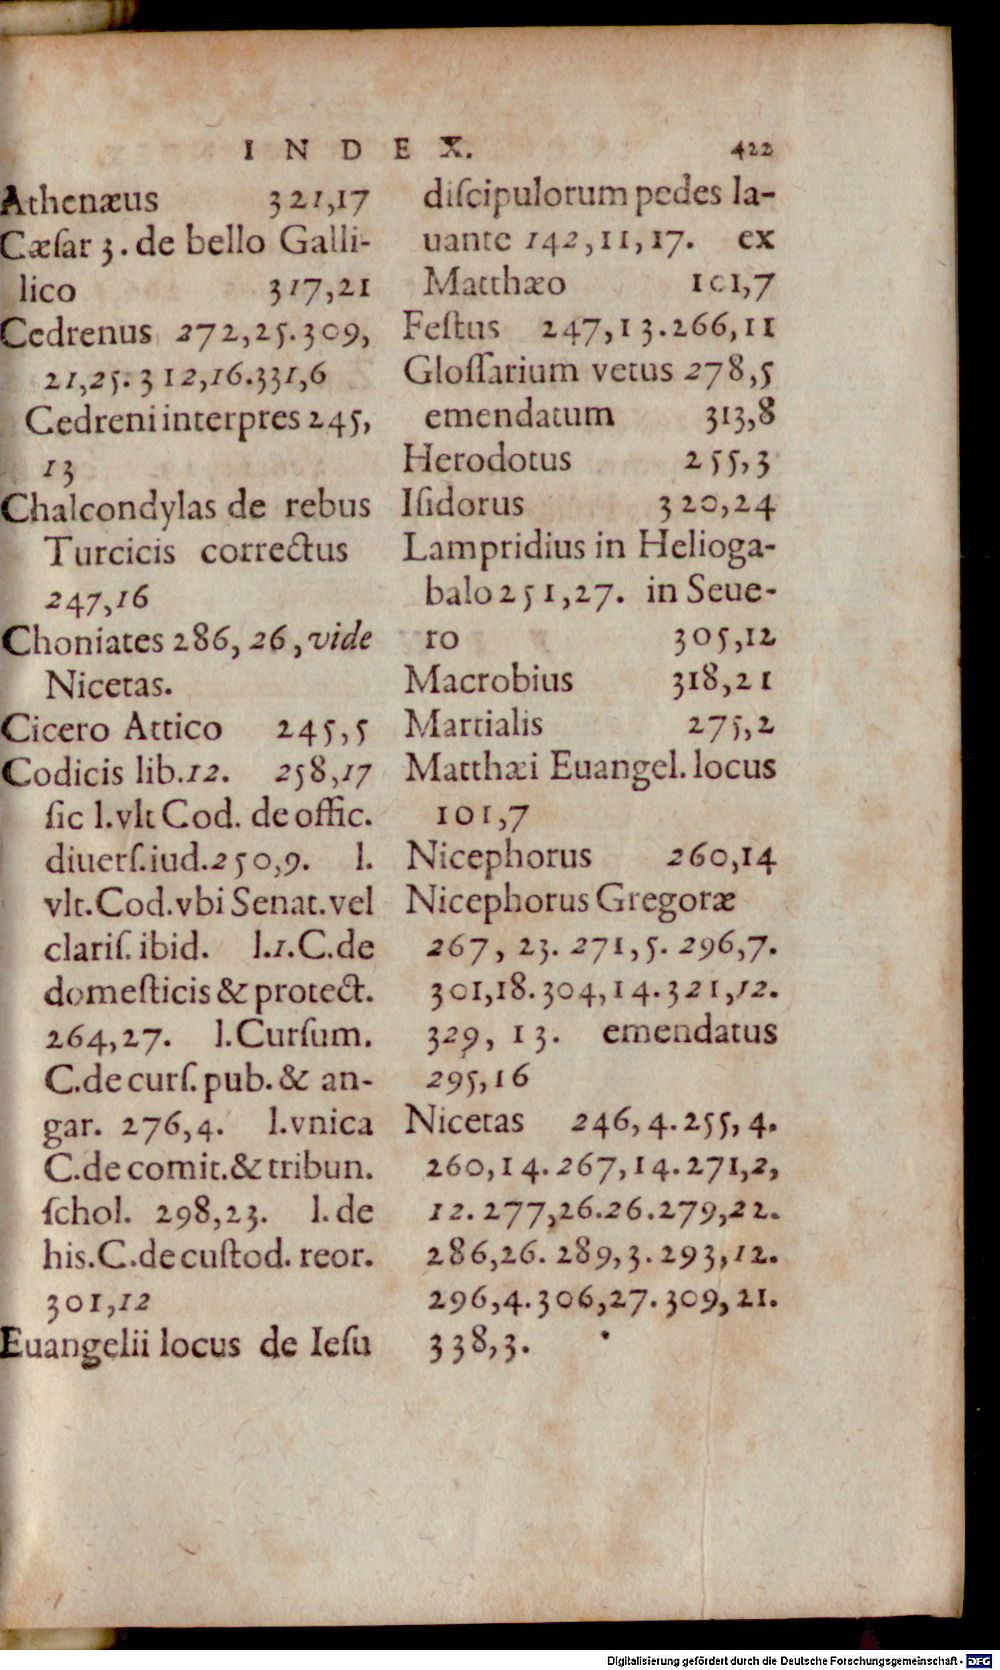 INDEX. 422
Athenæus 321,17
Cæsar 3. de bello Galli-
lico 317,21
Cedrenus 272,25.309,
21,25.312,16.331,6
Cedreni interpres 245,
13
Chalcondylas de rebus
Turcicis correctus
247,16
Choniates 286, 26, vide
Nicetas.
Cicero Attico 245,5
Codicis lib.12. 258,17
sic l.vlt Cod. de offic.
diuerſ.iud.250,9. l.
vlt.Cod.vbi Senat.vel
clariſ.ibid. l.1.C.de
domeſticis & protect.
264,27. l.Curſum.
C.de curſ.pub. & an-
gar. 276,4. l.vnica
C.de comit.& tribun.
ſchol. 298,23. l. de
his.C.de cuſtod. reor.
301,12
Euangelii locus de Ieſu
diſcipulorum pedes la-
uante 142,11,17. ex
Matthæo 101,7
Feſtus 247,13.266,11
Gloſſarium vetus 278,5
emendatum 313,8
Herodotus 255,3
Iſidorus 320,24
Lampridius in Helioga-
balo 251,27. in Seue-
ro 305,12
Macrobius 318,21
Martialis 275,2
Matthæi Euangel. locus
101,7
Nicephorus 260,14
Nicephorus Gregoræ
267, 23. 271,5. 296,7.
301,18.304,14.321,12.
329, 13. emendatus
295,16
Nicetas 246,4.255,4.
260,14.267,14.271,2,
12.277,26.26.279,22.
286,26. 289,3.293,12.
296,4.306,27.309,21.
338,3.
Digitalisierung gefördert durch die Deutsche Forschungsgemeinschaft - DFG